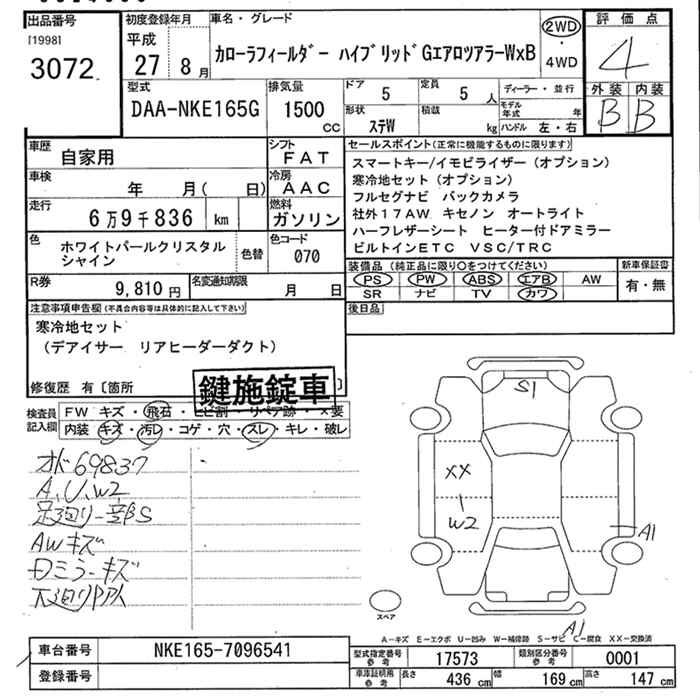 出品番号 初度登録年月 車名・グレード 2WD 評価点
[1998]
平成
3072 27 8月 カローラフィールダー ハイブリッドGエアロツアラーWxB ・ 4
4WD
型式 排気量 ドア 5 定員 5人 ディーラー・並行 外装 内装
DAA-NKE165G 1500 cc 形状 ステW 積載 kg モデル年式 年 B B
ハンドル 左・右
車歴 自家用 シフト FAT セールスポイント(正常に機能するものに限ります)
車検 年 月( 日) 冷房 AAC スマートキー/イモビライザー(オプション)
寒冷地セット(オプション)
走行 6万9千836 km 燃料 ガソリン フルセグナビ バックカメラ
社外17AW キセノン オートライト
色 ホワイトパールクリスタルシャイン 色替 色コード 070 ハーフレザーシート ヒーター付ドアミラー
ビルトインETC VSC/TRC
R券 9,810円 名変通知期限 月 日 装備品(純正品に限り○をつけてください) 新車保証書
PS PW ABS エアB AW 有・無
SR ナビ TV カワ
注意事項申告欄(不具合内容等は具体的に記入して下さい) 後日品
寒冷地セット
(デアイサー リアヒーダーダクト)
修復歴 有〔箇所 〕
鍵施錠車
検査員記入欄 FW キズ・飛石・ヒビ割・リペア跡・×要
内装 キズ・汚レ・コゲ・穴・スレ・キレ・破レ
S1
オド69837
A、U、W2
足廻り一部S
AWキズ
XX
W2
A1
スペア
A1
A-キズ E-エクボ U-凹み W-補修跡 S-サビ C-腐食 XX-交換済
車台番号 NKE165-7096541 型式指定番号 参考 17573 類別区分番号 参考 0001
登録番号 車庫証明用 参考 長さ 436 cm 幅 169 cm 高さ 147 cm